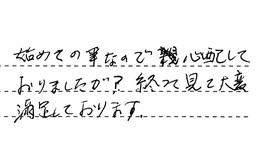 始めての事なので親心配して
おりましたが?終って見て大変
満足しております。